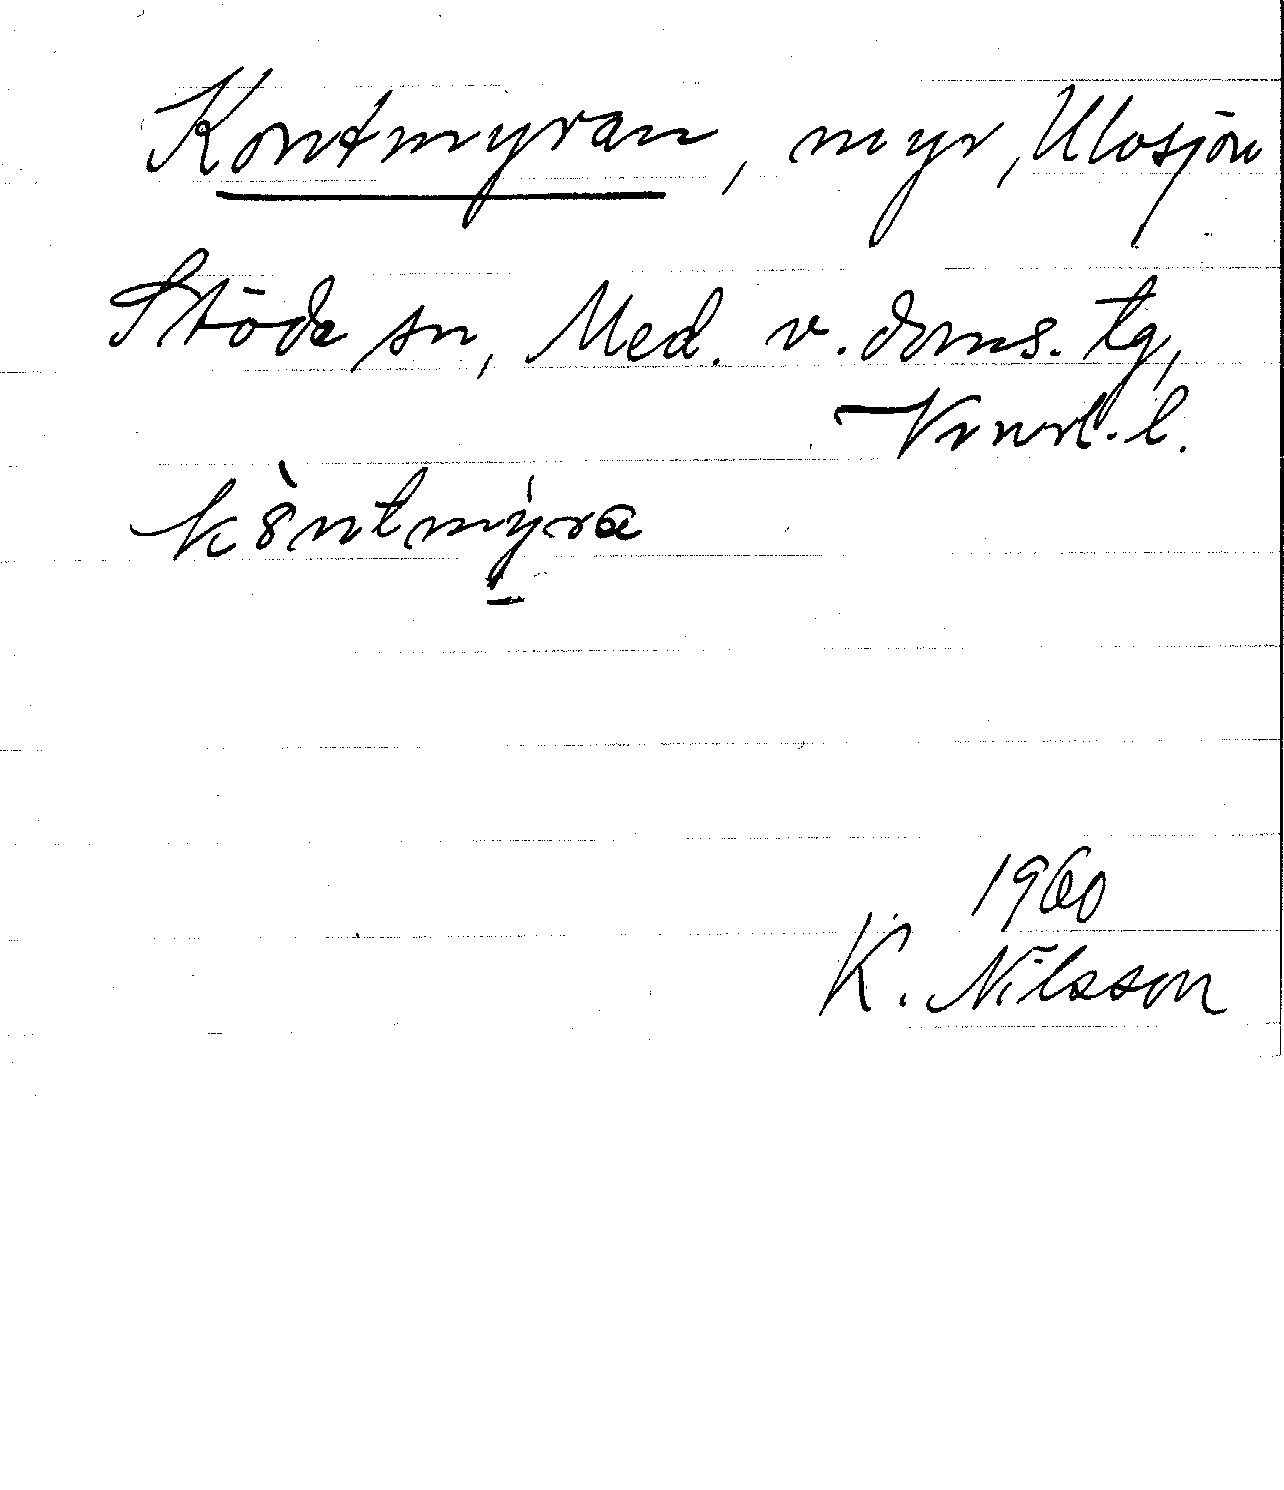 Kontmyran, myr, Ulvsjön
Stöde sn, Med. v. doms. tg,
Vnrl. l.
köntmyra
1960
K. Nilsson